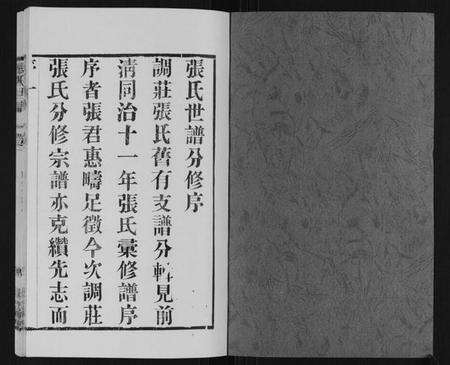 張氏世譜分修序
調莊張氏舊有支譜分輯見前
淸同治十一年張氏彙修譜序
序者張君惠疇足徵今次調莊
張氏分修宗譜亦克纘先志而
序 一